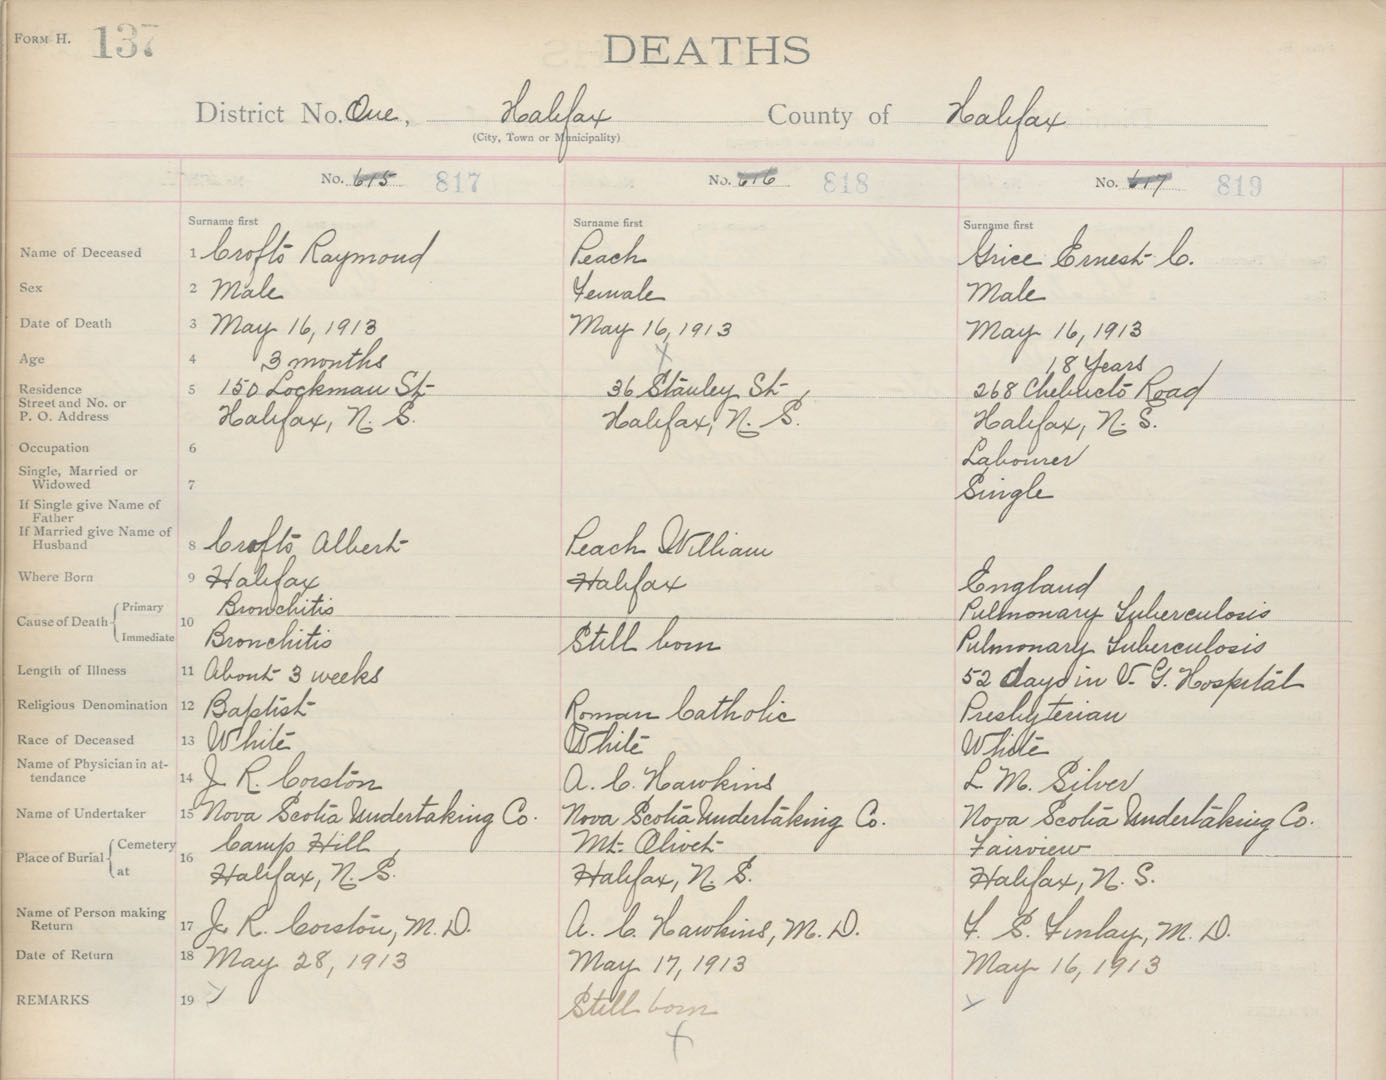 FORM H. 137
DEATHS
District No. One, Halifax County of Halifax
(City, Town or Municipality)
No. 615 817 No. 616 818 No. 617 819
Surname first Surname first Surname first
Name of Deceased 1 Crofts Raymond Peach Grice Ernest C.
Sex 2 Male Female Male
Date of Death 3 May 16, 1913 May 16, 1913 May 16, 1913
Age 4 3 months 18 Years
Residence 5 150 Lockman St 36 Stanley St 268 Chebucto Road
Street and No. or
P. O. Address Halifax, N. S. Halifax, N. S. Halifax, N. S.
Occupation 6 Labourer
Single, Married or
Widowed 7 Single
If Single give Name of
Father
If Married give Name of
Husband 8 Crofts Albert Peach William
Where Born 9 Halifax Halifax England
Cause of Death Primary 10 Bronchitis Pulmonary Tuberculosis
Immediate Bronchitis Still born Pulmonary Tuberculosis
Length of Illness 11 About 3 weeks 52 days in V. G. Hospital
Religious Denomination 12 Baptist Roman Catholic Presbyterian
Race of Deceased 13 White White White
Name of Physician in at-
tendance 14 J. R. Corston A. C. Hawkins L. M. Silver
Name of Undertaker 15 Nova Scotia Undertaking Co. Nova Scotia Undertaking Co. Nova Scotia Undertaking Co.
Place of Burial Cemetery 16 Camp Hill Mt. Olivet Fairview
at Halifax, N. S. Halifax, N. S. Halifax, N. S.
Name of Person making
Return 17 J. R. Corston, M. D. A. C. Hawkins, M. D. F. S. Finlay, M. D.
Date of Return 18 May 28, 1913 May 17, 1913 May 16, 1913
REMARKS 19 Still born